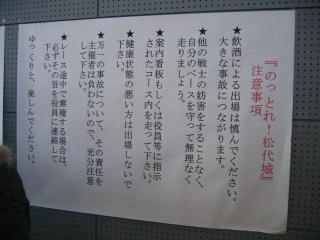 『のっとれ！松代城』
注意事項
★飲酒による出場は慎んでください。
大きな事故につながります。
★他の戦士の妨害をすることなく、
自分のペースを守って無理なく
走りましょう。
★案内看板もしくは役員等に指示
されたコース内を走って下さい。
★健康状態の悪い方は出場しないで
下さい。
★万一の事故について、その責任を
主催者は負わないので、充分注意
して下さい。
★レース途中で棄権する場合は、
必ずその旨を役員に連絡して
下さい。
ゆっくりと、楽しんでください。